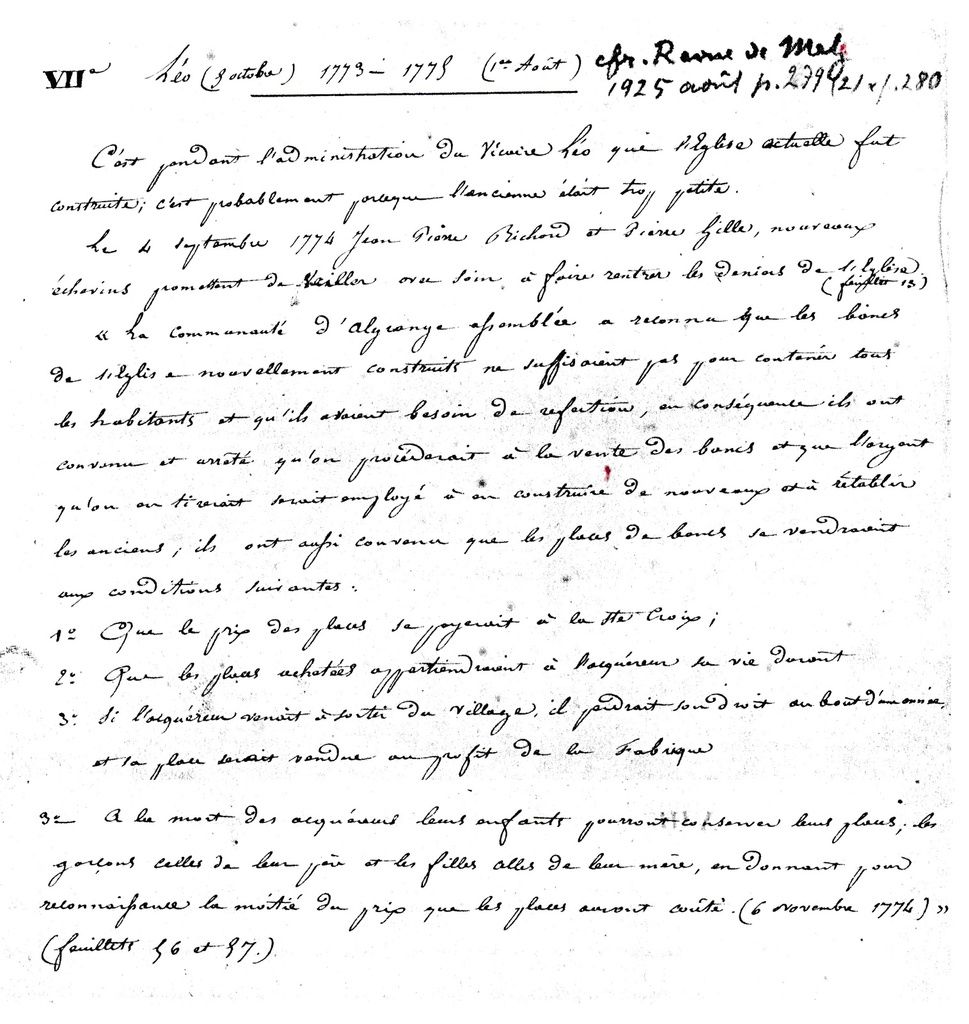 VIIe Léo (5 octobre) 1773 - 1775 (1er Août) cfr. Revue de Metz
1925 août p. 279 (21 x/. 280
C'est pendant l'administration du Vicaire Léo que l'Eglise actuelle fut
construite; c'est probablement parceque l'ancienne était trop petite.
Le 4 septembre 1774 Jean Pierre Richard et Pierre Gille, nouveaux
échevins promettent de veiller avec soin à faire rentrer les deniers de l'Eglise.
(feuillet 13)
« La communauté d'Algrange assemblée a reconnu que les bancs
de l'Eglise nouvellement construits ne suffisaient pas pour contenir tous
les habitants et qu'ils avaient besoin de refection, en conséquence ils ont
convenu et arreté qu'on procéderait à la vente des bancs et que l'argent
qu'on en tirerait serait employé à en construire de nouveaux et à rétablir
les anciens; ils ont aussi convenu que les places de bancs se vendraient
aux conditions suivantes:
1° Que le prix des places se payerait à la Ste Croix;
2° Que les places achetées appartiendraient à l'acquéreur sa vie durant
3° Si l'acquéreur venait à sortir du village, il perdrait son droit au bout d'une année,
et sa place serait vendue au profit de la Fabrique
3° A la mort des acquéreurs leurs enfants pourront conserver leurs places; les
garçons celles de leur père et les filles celles de leur mère, en donnant pour
reconnaissance la moitié du prix que les places auront couté. (6 Novembre 1774) »
(feuillets 56 et 57.)